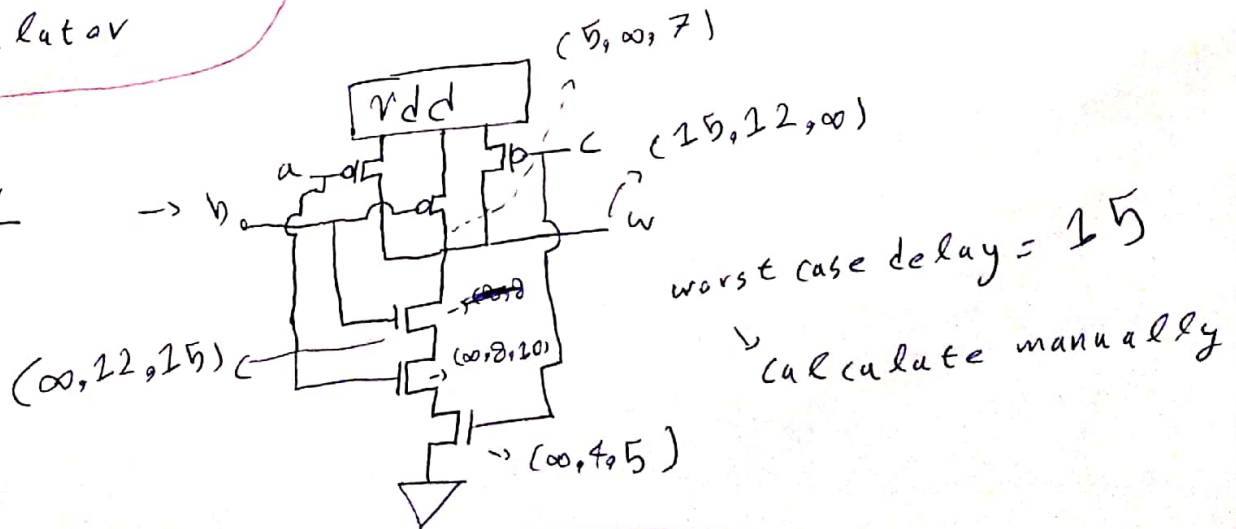 lutor
(5, ∞, 7)
vdd
(15, 12, ∞)
a
c
→ b
w
worst case delay = 15
calculate manually
(∞, 12, 15)
(∞, 8, 10)
(∞, 4, 5)